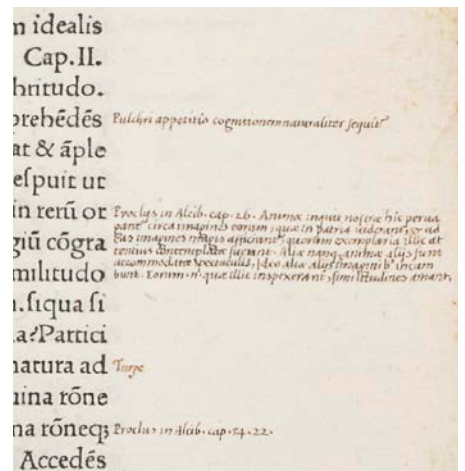 n idealis
Cap.II.
hritudo.
prehēdēs
at & āple
eſpuit ut
in rerū or
giū cōgra
militudo
.ſiqua ſi
a?Partici
natura ad
uina rōne
na rōneqꝫ
Accedēs
Pulchri appetitio cognitionem naturaliter sequit
Proclus in Alcib. cap. 26. Animæ inquit nostræ hic perua
gant circa imagines eorum, quæ in patria uiderant, et ad
eas imagines afficiunt, quorum exemplaria illic at
tentius contemplatæ fuerant. Aliæ nanq, animæ alijs sunt
accommodatæ spectaculis, Ideo aliæ alijs imaginib' incum
bunt. Eorum. n. quæ illic inspexerant, similitudines amant.
Turpe
Proclus in Alcib. cap. 54. 22.